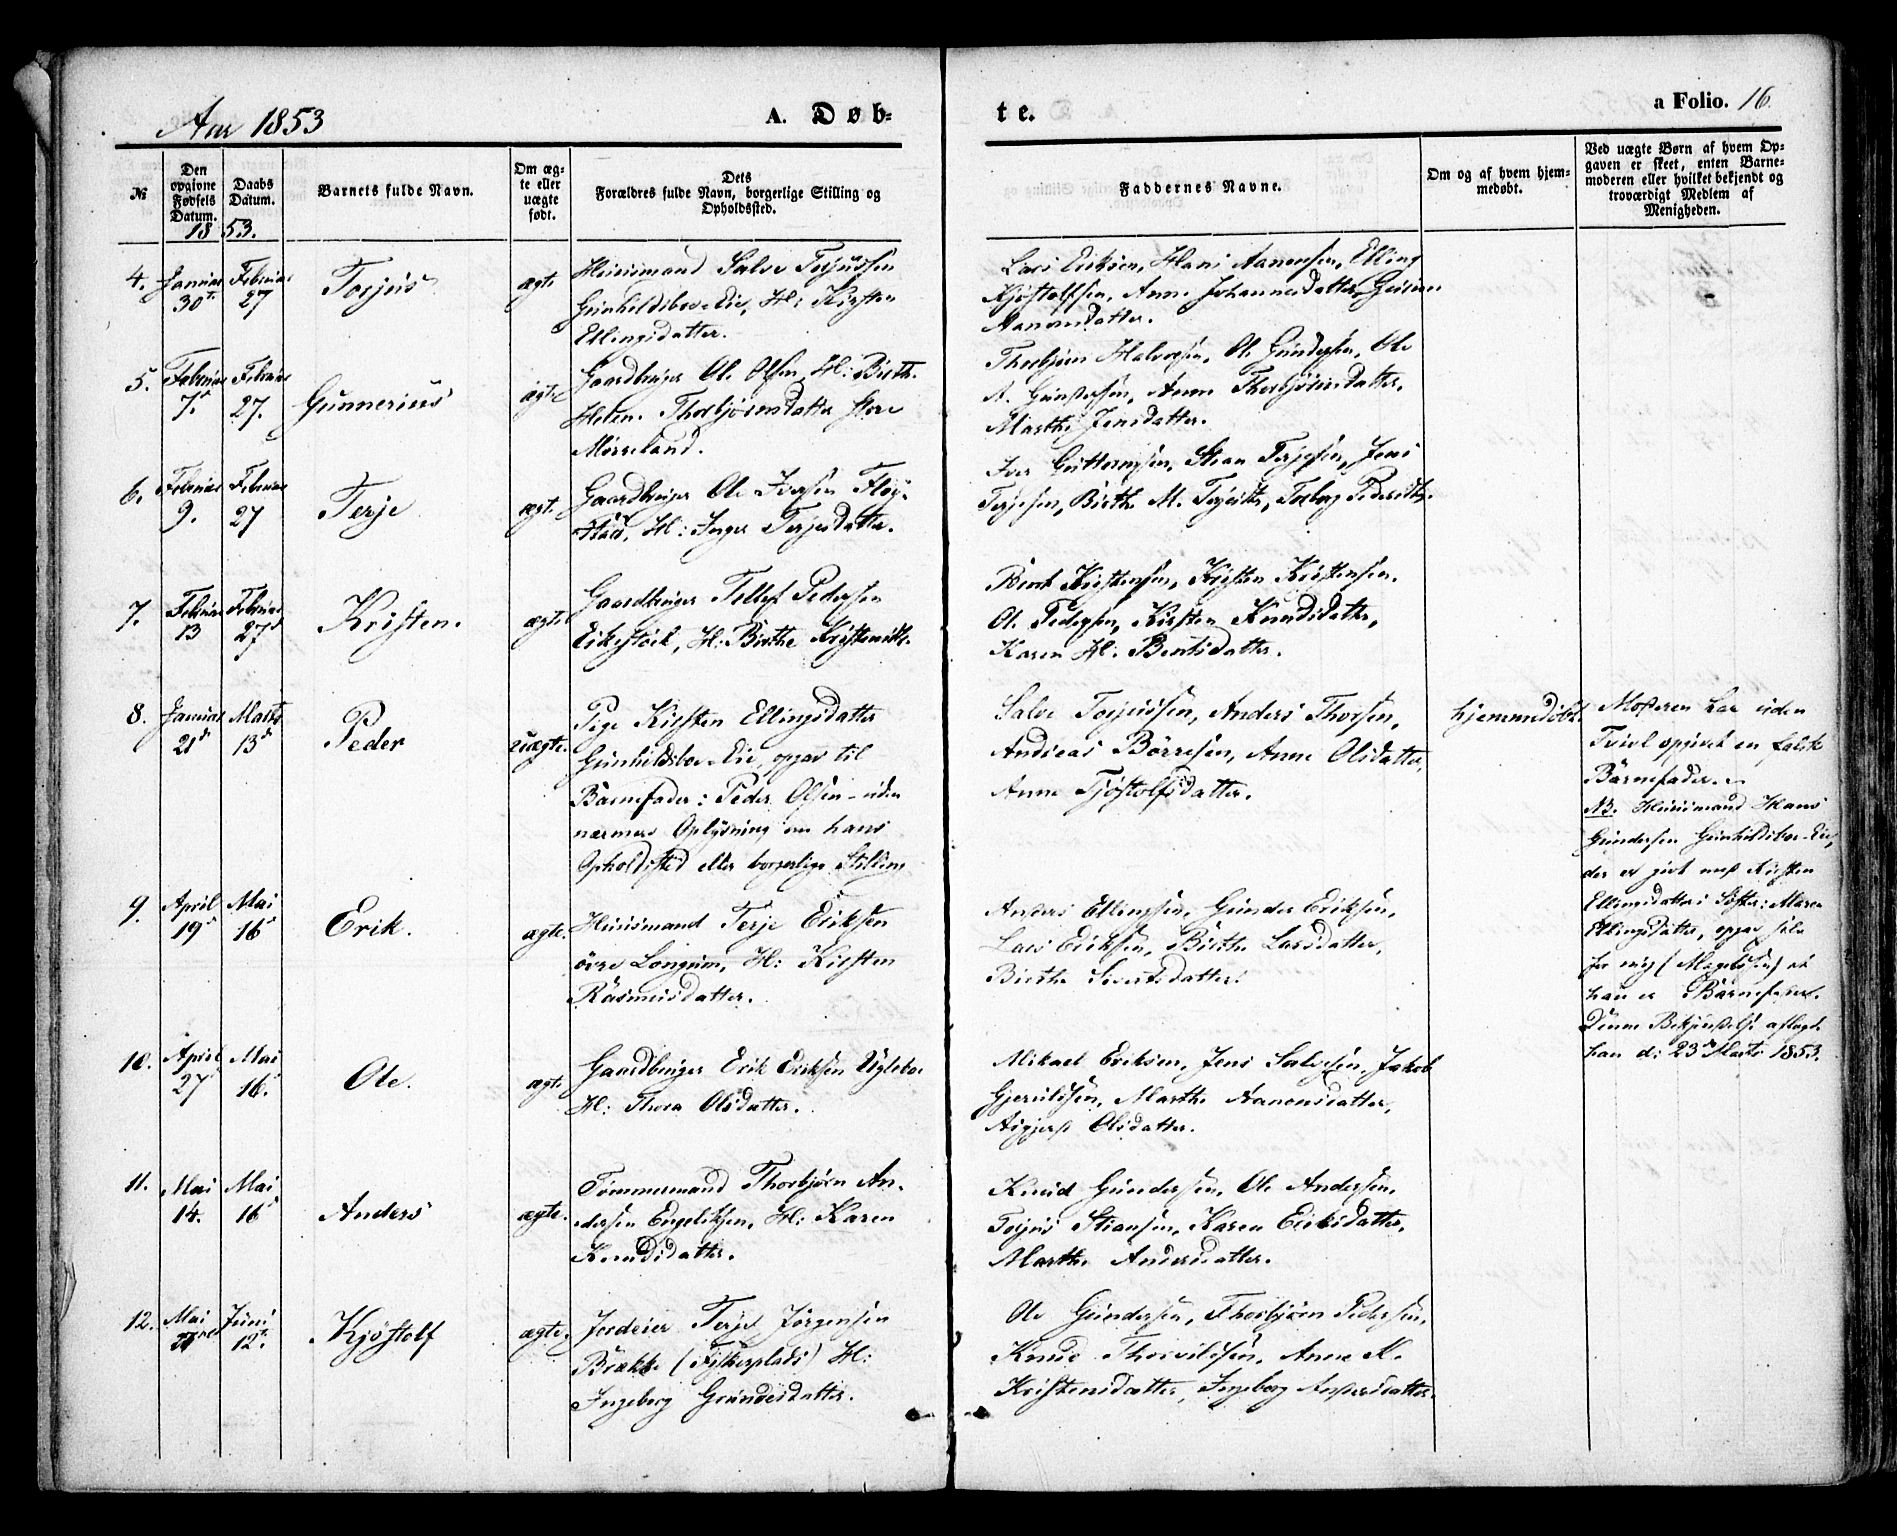 Aar 1853
A. Døb-
te.
a Folio. 16.
№
Den opgivne Fødsels Datum.
Daabs Datum.
1853.
Barnets fulde Navn.
Om ægte eller uægte født.
Dets
Forældres fulde Navn, borgerlige Stilling og
Opholdssted.
Faddernes Navne.
Om og af hvem hjem-
medøbt.
Ved uægte Børn af hvem Op-
gaven er skeet, enten Barne-
moderen eller hvilket bekjendt og
troværdigt Medlem af
Menigheden.
4. Januar 30te Februar 27 Torjus ægte
Huusmand Salve Torjussen
Gunhildsboe Eie, H: Kirsten
Ellingsdatter.
Lars Eriksen, Hans Aanensen, Elling
Kjøstolfsen, Anne Johannesdatter,
Aanonsdatter.
5. Februar 7d Februar 27. Gunnerius ægte
Gaardbruger Ole Olsen, H: Birthe
Helene Thorbjørnsdatter store
Messeland.
Thorbjørn Halvorsen, Ole Gundersen, Ole
A. Gundersen, Anne Thorbjørnsdatter,
Marthe Jensdatter.
6. Februar 9. Februar 27 Terje ægte
Gaardbruger Ole Iversen Fløi-
stad, H: Inger Terjesdatter.
Iver Guttormsen, Stian Terjesen, Jens
Terjesen, Birthe M. Terjesdtr, Torborg Pedersdtr.
7. Februar 13 Februar 27d Kristen. ægte
Gaardbruger Tellef Pedersen
Eikestøck, H: Birthe Kristensdtr.
Bent Kristensen, Kristen Kristensen,
Ole Pedersen, Kirsten Knudsdatter,
Karen H: Bentsdatter.
8. Januar 21d Marts 13d Peder uægte.
Pige Kirsten Ellingsdatter
Gunhildsboe Eie, opgav til
Barnefader: Peder Olsen - uden
nærmere Oplysning om hans
Opholdssted eller borgerlige Stilling
Salve Torjussen, Anders Thorsen,
Andreas Børresen, Anne Olsdatter,
Anne Tjøstolfsdatter.
hjemmedøbt
Moderen har uden
Tvivl opgivet en falsk
Barnefader.
NB. Huusmand Hans
Gundersen Gunhildsboe Eie,
der er givt med Kirsten
Ellingsdatters Søster: Maren
Ellingsdatter, opgav selv
for mig (Magelssen) at
han er Barnefader.
Denne Bekjendelse aflagde
han d: 23de Marts 1853.
9. April 19d Mai 16d Erik. ægte.
Huusmand Terje Eriksen
øvre Longum, H: Kirsten
Rasmusdatter.
Anders Ellingsen, Gunder Eriksen,
Lars Eriksen, Birthe Larsdatter,
Birthe Sivertsdatter.
10. April 27d Mai 16d Ole. ægte
Gaardbruger Erik Eriksen Ugleboe
H: Thora Olsdatter.
Mikael Eriksen, Jens Salvesen, Jakob
Gjeruldsen, Marthe Aanonsdatter,
Olsdatter.
11. Mai 14. Mai 16d Anders ægte.
Tømmermand Thorbjørn An-
dersen Engeliksen, H: Karen
Knudsdatter.
Knud Gundersen, Ole Andersen,
Terjus Stiansen, Karen Eriksdatter,
Marthe Andersdatter.
12. Mai Juni 12te Kjøstolf ægte.
Jordeier Terje Jørgensen
Brække (Fiskerplads) H:
Ingeborg Gundersdatter.
Ole Gundersen, Thorbjørn Pedersen,
Knud Thorvildsen, Anne K.
Kristensdatter, Ingeborg Andersdatter.